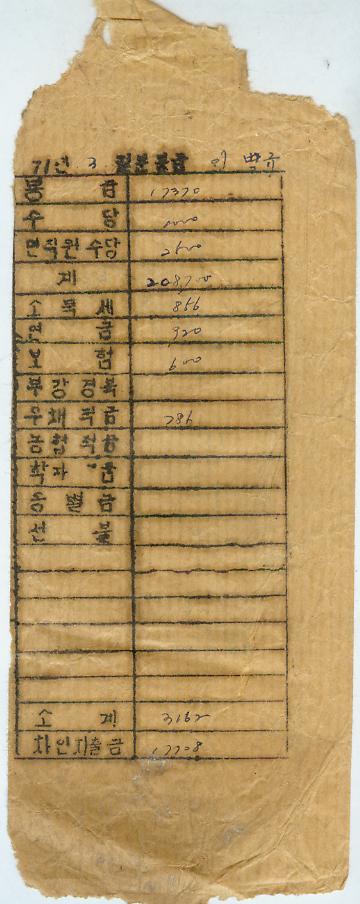 71년 3 월분봉급
봉급 17370
수당 1000
면직원수당 2500
계 20870
소득세 856
연금 920
보험 600
부강경목
우체적금 786
농협적금
학자금
송별금
선불
소계 3162
차인지출금 17708